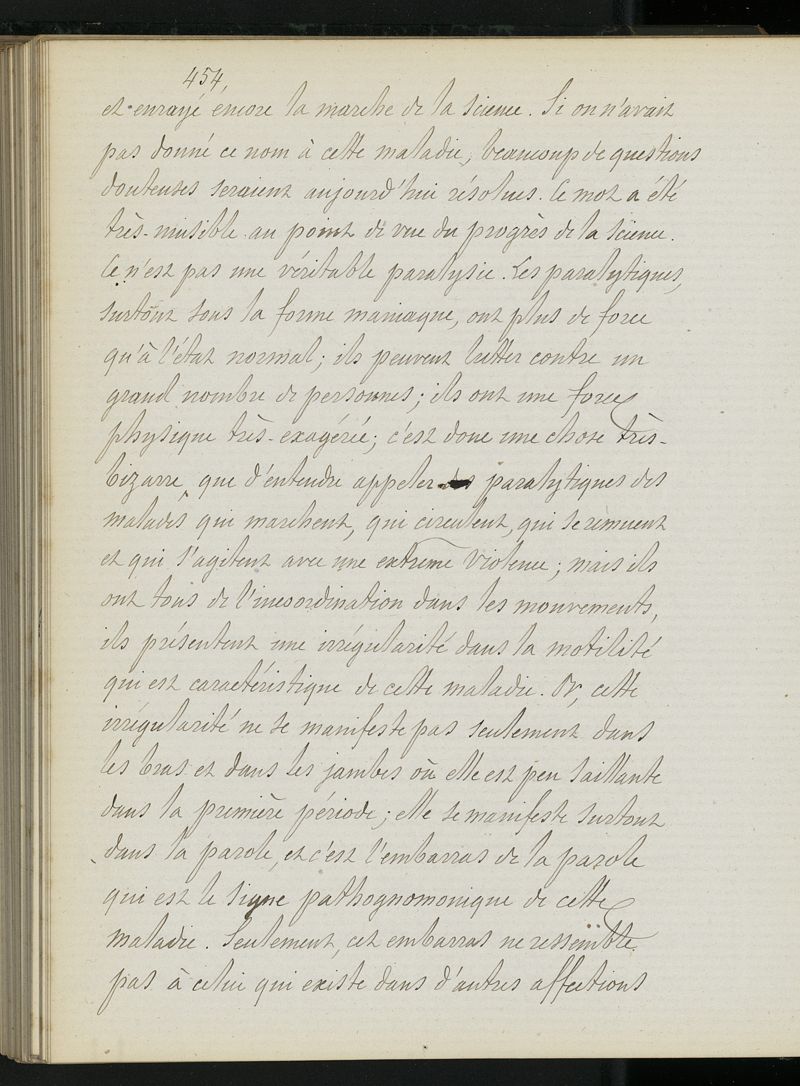 454,
et enrayé encore la marche de la science. Si on n'avait
pas donné ce nom à cette maladie, beaucoup de questions
douteuses seraient aujourd'hui résolues. Ce mot a été
très-nuisible au point de vue du progrès de la science.
Ce n'est pas une véritable paralysie. Les paralytiques,
surtout sous la forme maniaque, ont plus de force
qu'à l'état normal; ils peuvent lutter contre un
grand nombre de personnes; ils ont une force
physique très-exagérée; c'est donc une chose très-
bizarre que d'entendre appeler paralytiques des
malades qui marchent, qui circulent, qui se remuent
et qui s'agitent avec une extrême violence; mais ils
ont tous de l'incoordination dans les mouvements,
ils présentent une irrégularité dans la motilité
qui est caractéristique de cette maladie. Or, cette
irrégularité ne se manifeste pas seulement dans
les bras et dans les jambes où elle est peu saillante
dans la première période; elle se manifeste surtout
dans la parole, et c'est l'embarras de la parole
qui est le signe pathognomonique de cette
maladie. Seulement, cet embarras ne ressemble
pas à celui qui existe dans d'autres affections